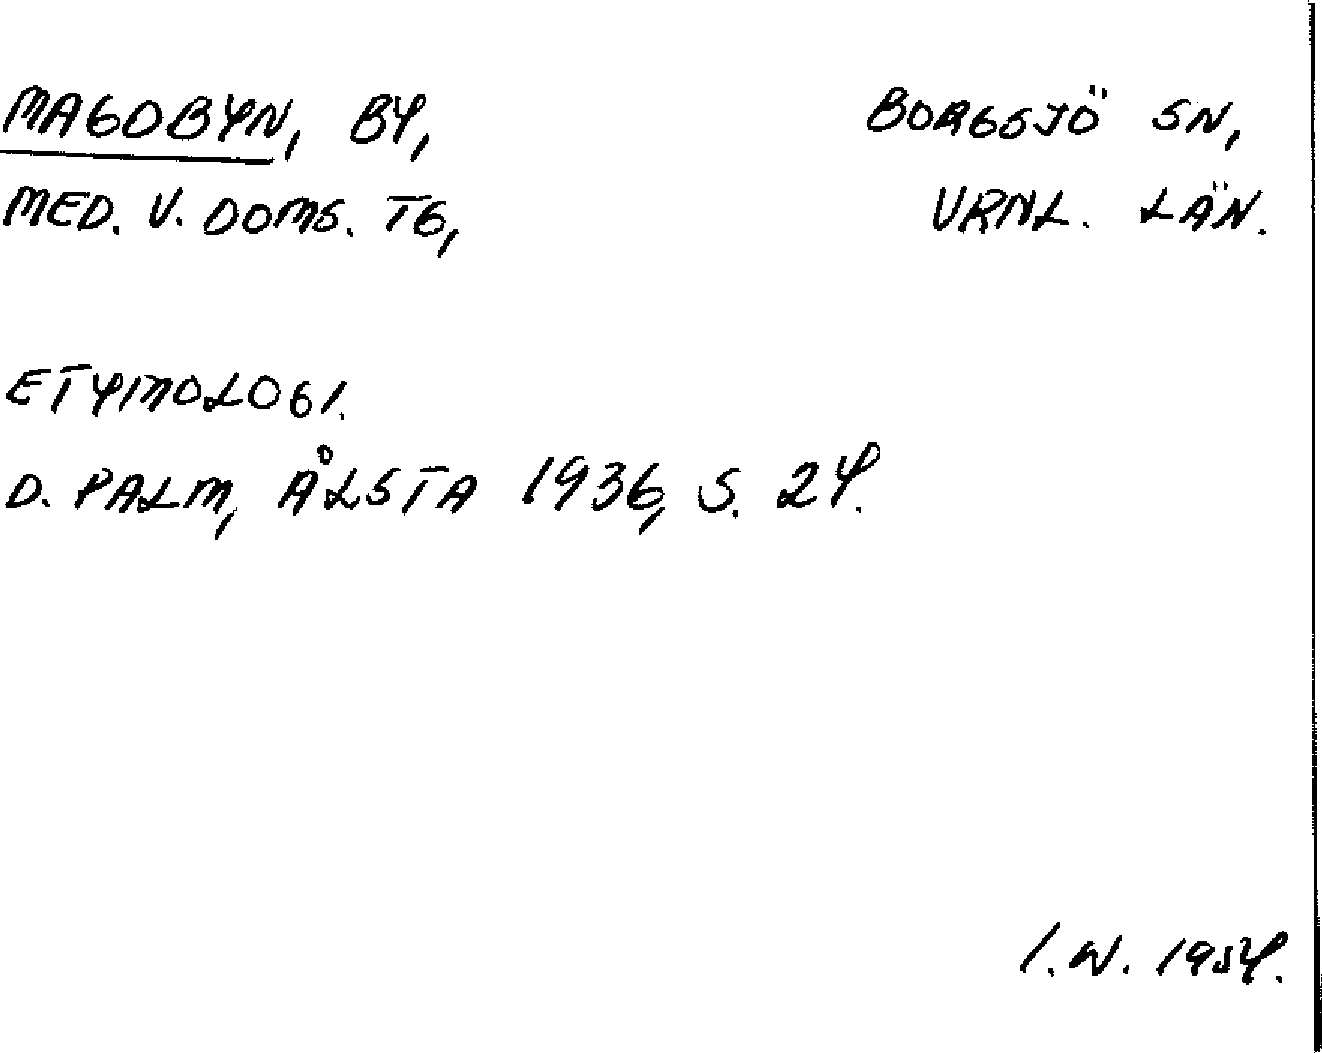 MAGOBYN, BY, BORGSJÖ SN,
MED. V. DOMS. TG, VRNL. LÄN.
ETYMOLOGI.
D. PALM, ÅLSTA 1936, S. 24.
I.W. 1954.